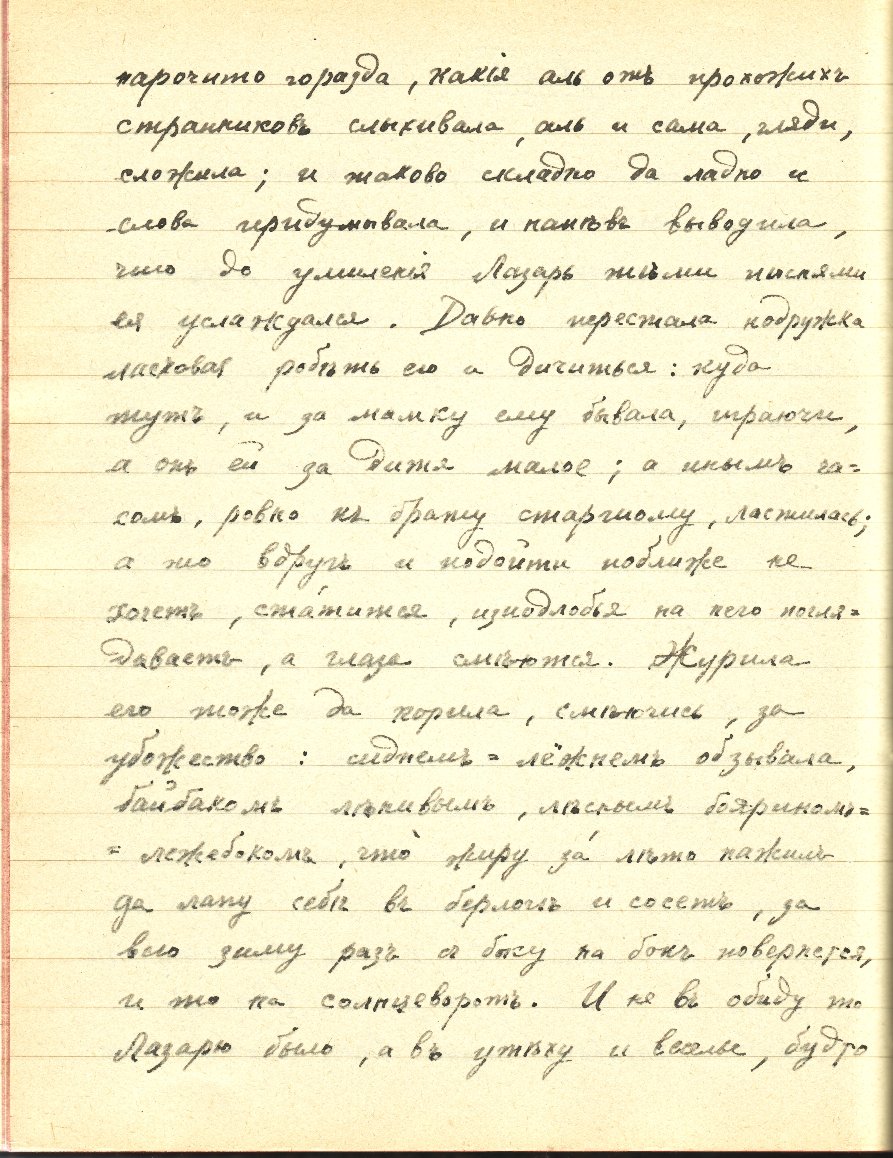 нарочито горазда, какія аль отъ прохожихъ
странниковъ слыхивала, аль и сама, гляди,
сложила; и таково складно да ладно и
слова придумывала, и напѣвъ выводила,
что до умиленія Лазарь тѣми пѣснями
ея услаждался. Давно перестала подружка
ласковая робѣть его и дичиться: куда
тутъ, и за мамку ему бывала, играючи,
а онъ ей за дитя малое; а инымъ ча=
сомъ, ровно къ брату старшому, ластилась;
а то вдругъ и подойти поближе не
хочетъ, ста́тится, изподлобья на него погля=
дываетъ, а глаза смѣются. Журила
его тоже да корила, смѣючись, за
убожество: сиднемъ=лёжнемъ обзывала,
байбакомъ лѣнивымъ, лѣснымъ бояриномъ=
=лежебокомъ, что̀ жиру за́ лѣто нажилъ
да лапу себѣ въ берлогѣ и сосетъ, за
всю зиму разъ съ боку на бокъ повернется,
и то на солнцеворотъ. И не въ обиду то
Лазарю было, а въ утѣху и веселье, будто